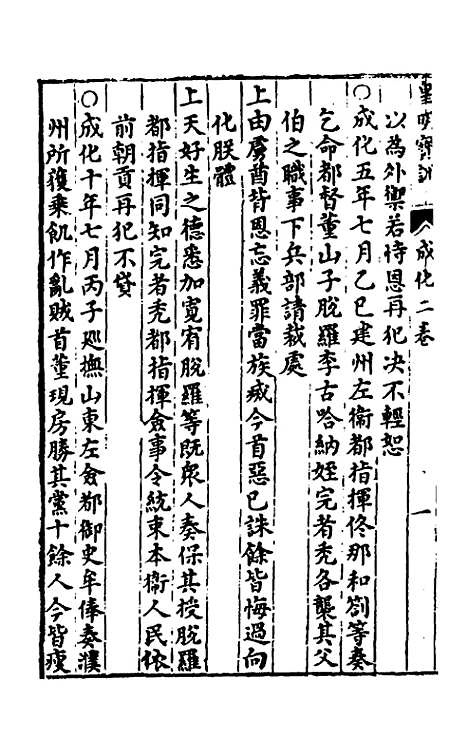 皇明寶訓 成化二卷 一
以為外禦若恃恩再犯决不輕恕
○成化五年七月乙巳建州左衞都指揮佟那和劄等奏
乞命都督董山子脫羅李古哈納姪完者秃各襲其父
伯之職事下兵部請裁處
上曰虜酋背恩忘義罪當族㓕今首惡已誅餘皆悔過向
化朕體
上天好生之德悉加寬宥脫羅等既衆人奏保其授脫羅
都指揮同知完者秃都指揮僉事令統束本衞人民依
前朝貢再犯不貸
○成化十年七月丙子廵撫山東左僉都御史牟俸奏濮
州所獲乘飢作亂賊首董現房勝其黨十餘人今皆瘐